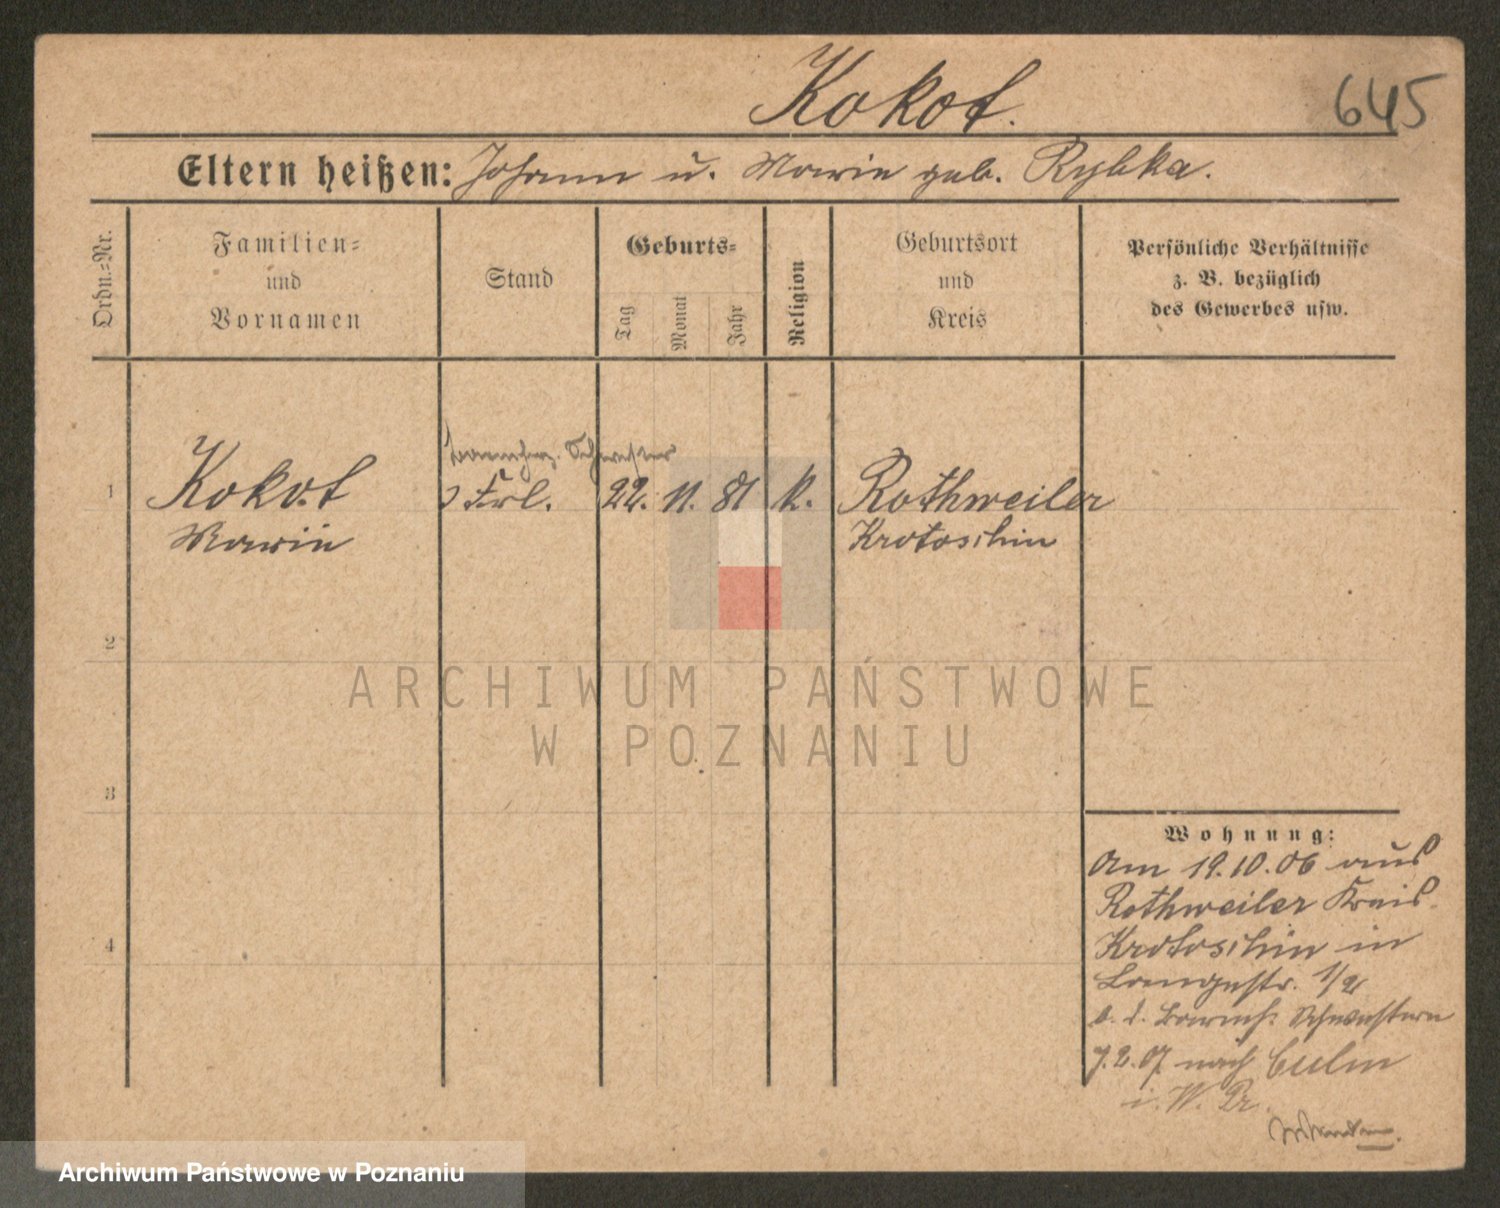 Kokot.
645
Eltern heißen: Johann u. Marie geb. Rybka.
Ordn.=Nr.
Familien=
und
Vornamen
Stand
Geburts=
Tag
Monat
Jahr
Religion
Geburtsort
und
Kreis
Persönliche Verhältnisse
z. B. bezüglich
des Gewerbes usw.
barmherz. Schwester
1 Kokot Frl. 22. 11. 81 k. Rothweiler
Marie Krotoschin
2
3
4
Wohnung:
Am 19.10.06 aus
Rothweiler Kreis
Krotoschin in
Langestr. 1/2
b. d. Barmh. Schwestern
7.2.07 nach Culm
i. W. Pr.
ARCHIWUM PAŃSTWOWE
W POZNANIU
Archiwum Państwowe w Poznaniu